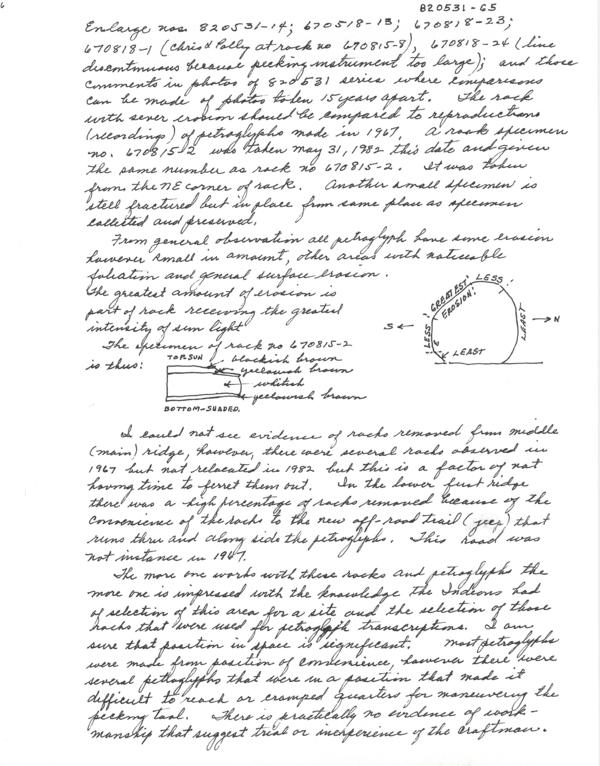 6
820531-65
Enlarge nos. 820531-14; 670518-13; 670818-23;
670818-1 (Chris & Polly at rock no 670815-8), 670818-24 (line
discontinuous because pecking instrument too large); and those
comments in photos of 820531 series where comparisons
can be made of photos taken 15 years apart. The rock
with sever erosion should be compared to reproductions
(recordings) of petroglyphs made in 1967. A rock specimen
no. 670815-2 was taken May 31, 1982 this date and given
the same number as rock no 670815-2. It was taken
from the NE corner of rock. Another small specimen is
still fractured but in place from same place as specimen
collected and preserved.
From general observation all petroglyph have some erosion
however small in amount, other areas with noticeable
foliation and general surface erosion.
The greatest amount of erosion is
part of rock receiving the greatest
intensity of sun light
The specimen of rock no 670815-2
is thus:
TOP SUN
blackish brown
yellowish brown
whitish
yellowish brown
BOTTOM-SHADED.
S
N
LESS
GREATEST
EROSION
LESS
LEAST
LEAST
I could not see evidence of rocks removed from middle
(main) ridge, however, there were several rocks observed in
1967 but not relocated in 1982 but this is a factor of not
having time to ferret them out. In the lower first ridge
there was a high percentage of rocks removed because of the
convenience of the rocks to the new off-road trail (jeep) that
runs thru and along side the petroglyphs. This road was
not instance in 1967.
The more one works with these rocks and petroglyphs the
more one is impressed with the knowledge the Indians had
of selection of this area for a site and the selection of those
rocks that were used for petroglyph transcriptions. I am
sure that position in space is significant. Most petroglyphs
were made from position of convenience, however there were
several petroglyphs that were in a position that made it
difficult to reach or cramped quarters for maneuvering the
pecking tool. There is practically no evidence of work-
manship that suggest trial or inexperience of the craftman.